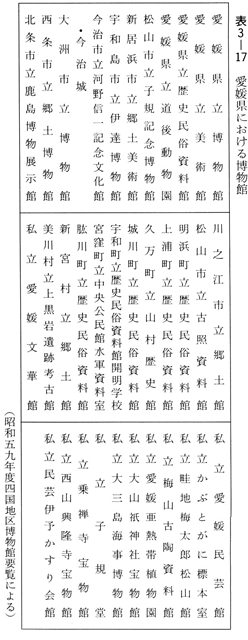 表3―17 愛媛県における博物館
愛媛県立博物館
愛媛県立美術館
愛媛県立歴史民俗資料館
愛媛県立道後動物園
松山市立子規記念博物館
新居浜市立郷土美術館
宇和島市立伊達博物館
今治市立河野信一記念文化館
・今治城
大洲市立博物館
西条市立郷土博物館
北条市立鹿島博物展示館
川之江市立郷土館
松山市立古照資料館
明浜町立歴史民俗資料館
上浦町立歴史民俗資料館
久万町立山村歴史館
城川町立歴史民俗資料館
宇和町立歴史民俗資料館開明学校
宮窪町立中央公民館水軍資料室
肱川町立歴史民俗資料館
新宮村立郷土館
美川村立上黒岩遺跡考古館
私立愛媛文華館
私立愛媛民芸館
私立かぶとがに標本室
私立畦地梅太郎松山館
私立梅山古陶資料館
私立愛媛亜熱帯植物園
私立大山祇神社宝物館
私立大三島海事博物館
私立子規堂
私立乗禅寺宝物館
私立西山興隆寺宝物館
私立民芸伊予かすり会館
（昭和五九年度四国地区博物館要覧による）